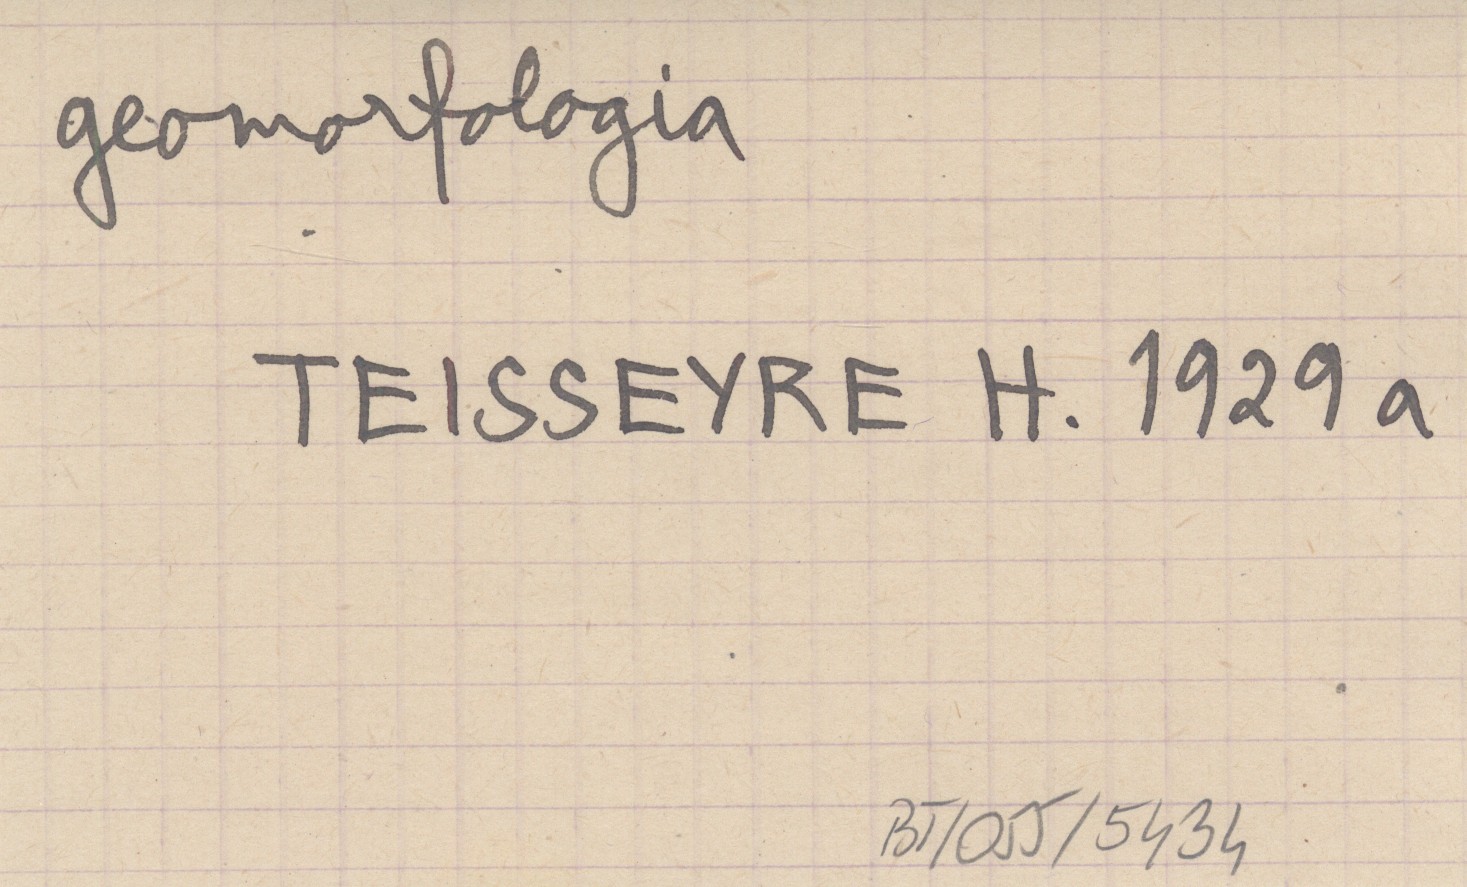 geomorfologia
TEISSEYRE H. 1929 a
BT/055/5434